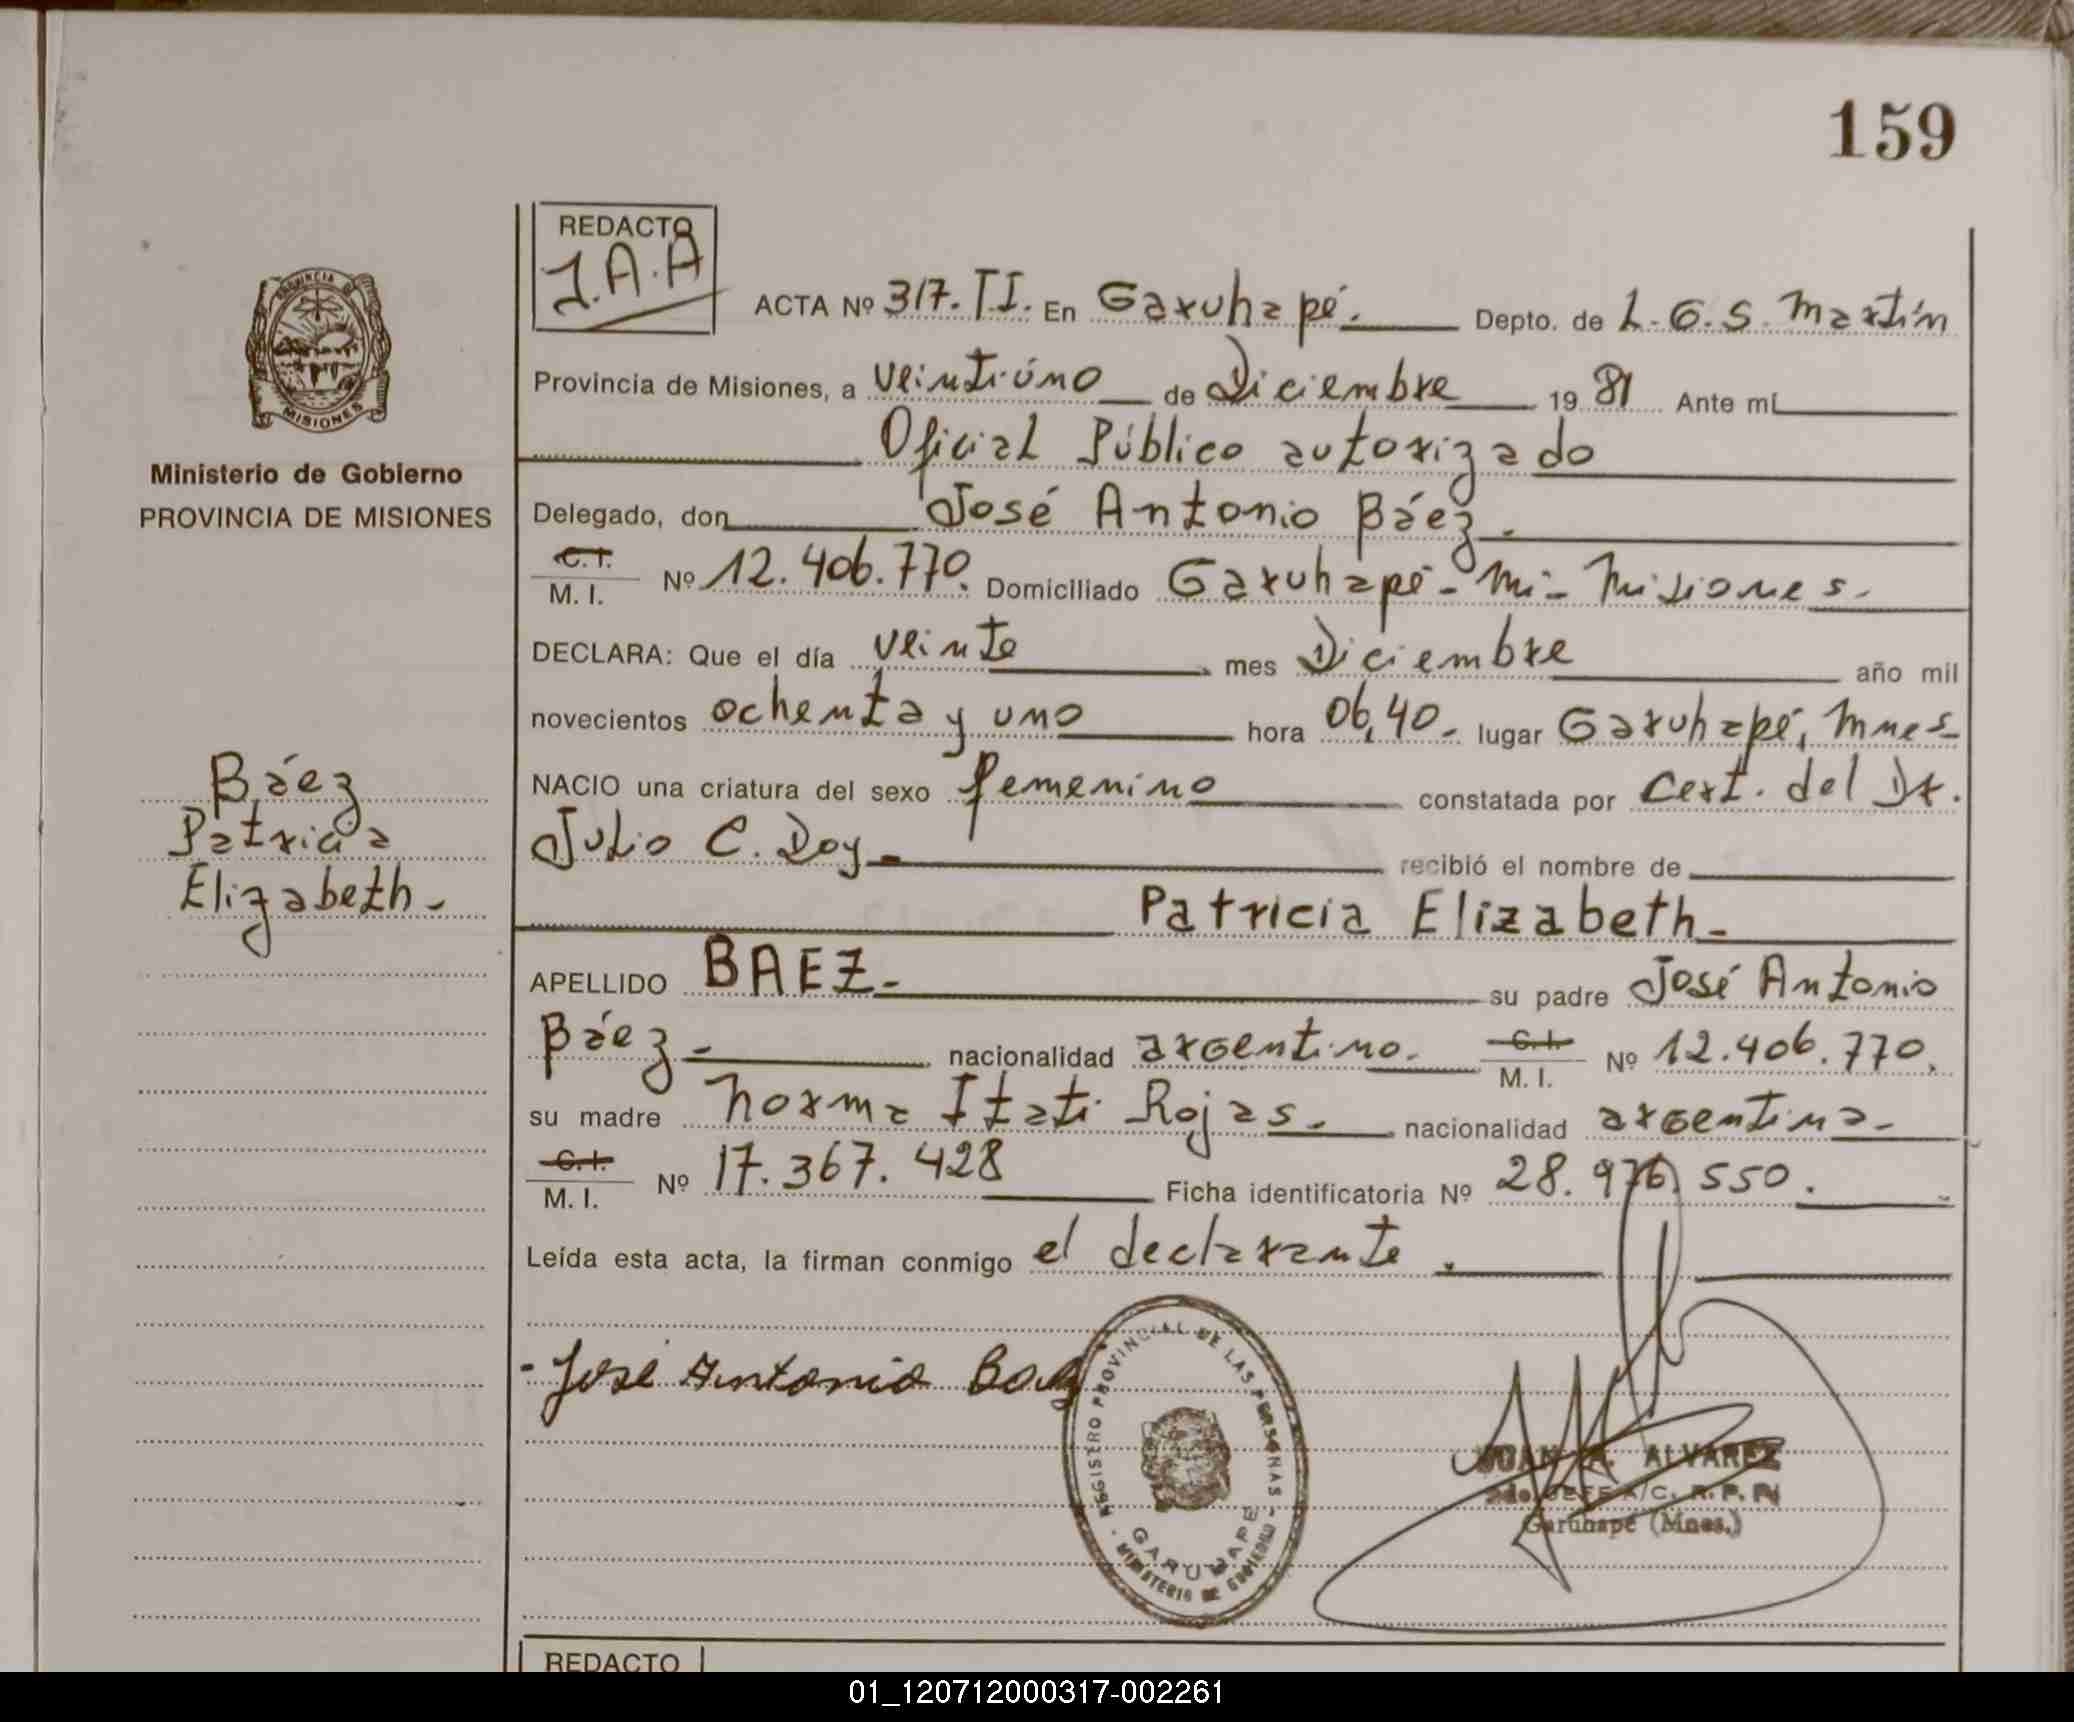 159
REDACTO
J.A.A
ACTA Nº 317. T.I. En Garuhapé. Depto. de L. G. S. Martín
Provincia de Misiones, a veintiúno de Diciembre 19 81 Ante mí
Oficial Público autorizado
Delegado, don José Antonio Báez.
C.I.
M. I. Nº 12.406.770. Domiciliado Garuhapé - Mi - Misiones.
DECLARA: Que el día veinte mes Diciembre año mil
novecientos ochenta y uno hora 06,40. lugar Garuhapé, Mnes
NACIO una criatura del sexo femenino constatada por Cert. del Dr.
Julio C. Doy recibió el nombre de
Patricia Elizabeth
APELLIDO BAEZ su padre José Antonio
Báez nacionalidad argentino. C.I.
M. I. Nº 12.406.770.
su madre Norma Itati Rojas. nacionalidad argentina
C.I.
M. I. Nº 17.367.428 Ficha identificatoria Nº 28.976.550.
Leída esta acta, la firman conmigo el declarante.
PROVINCIA DE
MISIONES
Ministerio de Gobierno
PROVINCIA DE MISIONES
Báez
Patricia
Elizabeth
José Antonio Baez
REGISTRO PROVINCIAL DE LAS PERSONAS
GARUHAPE
MINISTERIO DE GOBIERNO
JUAN A. ALVAREZ
2do. JEFE A/C. R. P. P.
Garuhapé (Mnes.)
REDACTO
01_120712000317-002261